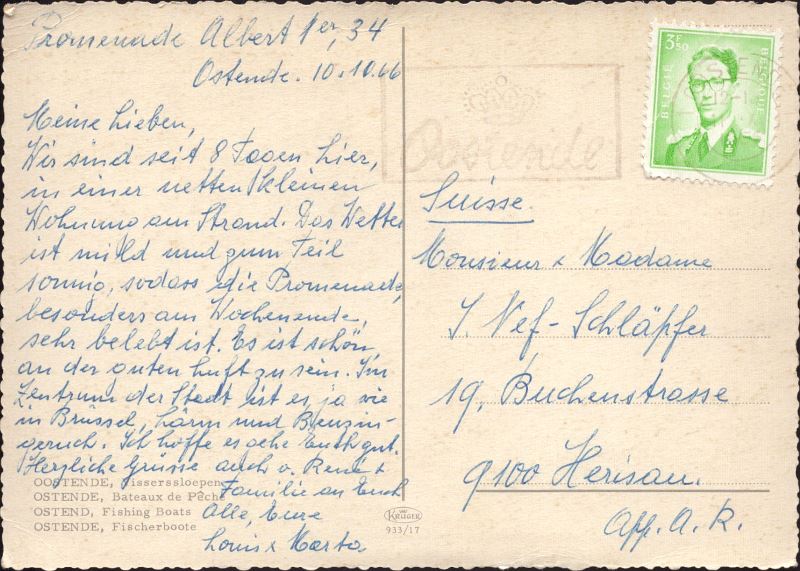 Promenade Albert 1er, 34
Ostende. 10.10.66
Meine Lieben,
Wir sind seit 8 Tagen hier,
in einer netten kleinen
Wohnung am Strand. Das Wetter
ist mild und zum Teil
sonnig, sodass die Promenade,
besonders am Wochenende,
sehr belebt ist. Es ist schön
an der guten Luft zu sein. Im
Zentrum der Stadt ist es ja wie
in Brüssel, Lärm und Benzin-
geruch. Ich hoffe es gehe Euch gut.
Herzliche Grüsse auch v. René +
Familie an Euch
Alle, Eure
Louis & Marta
OOSTENDE, Visserssloepen
OSTENDE, Bateaux de Pêche
OSTEND, Fishing Boats
OSTENDE, Fischerboote
KRÜGER
933/17
3F50
BELGIË
BELGIQUE
Oostende
Suisse.
Monsieur & Madame
J. Nef-Schläpfer
19, Buchenstrasse
9100 Herisau.
App. A. R.